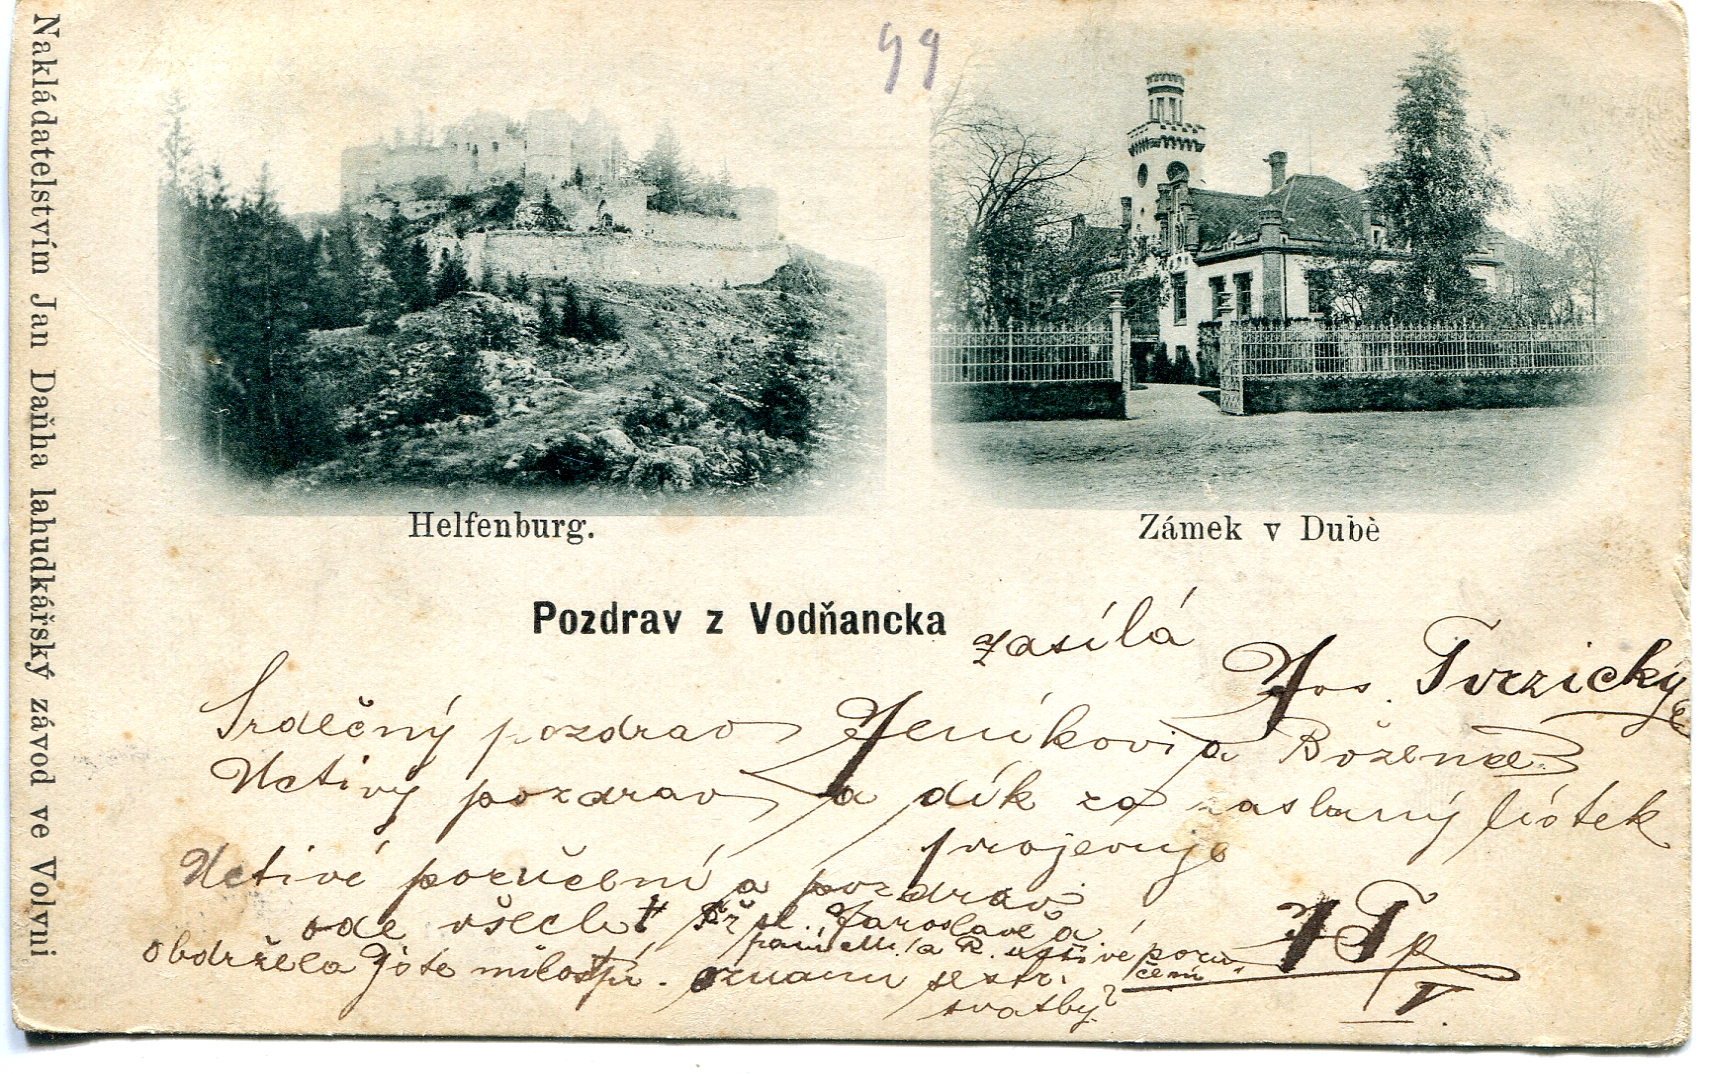 Nakládatelstvím Jan Daňha lahudkářský závod ve Volyni
99
Helfenburg.
Zámek v Dubè
Pozdrav z Vodňancka
zasílá
Jos. Tvrzický
Srdečný pozdrav Jeníkovi a Božence
Uctivý pozdrav a dík za zaslaný lístek
projevuje
Uctivé poručení a pozdrav
ode všech sl. Jaroslavě a
a R. uctivé poru-
čení
obdržela jste milostp. oznám. sestr.
svatby?
JT